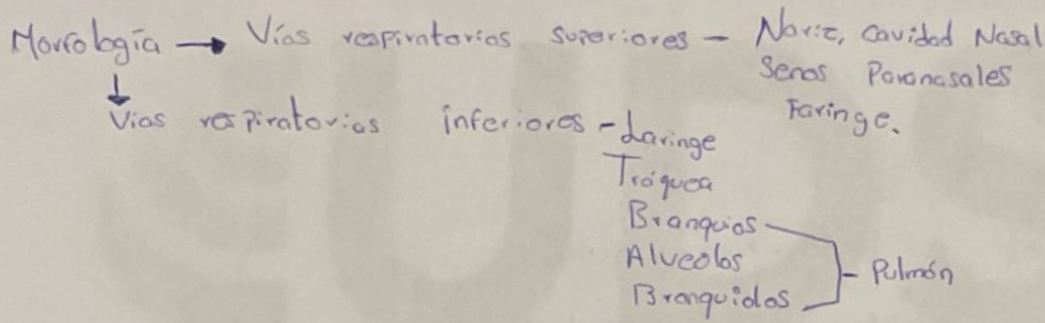 Morfología → Vías respiratorias superiores - Nariz, Cavidad Nasal
Senos Paranasales
Faringe.
↓
Vías respiratorias inferiores - Laringe
Tráquea
Branquios
Alveolos
Branquiolos
Pulmón